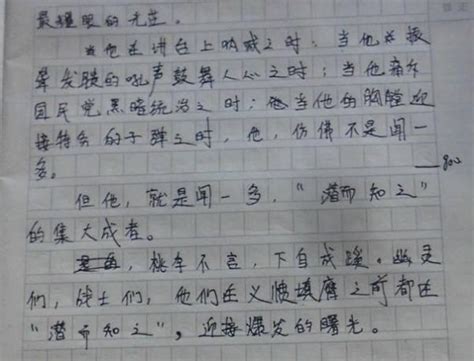 最耀眼的光芒。
当他在讲台上呐喊之时；当他以振
聋发聩的吼声鼓舞人心之时；当他痛斥
国民党黑暗统治之时；当他的胸膛迎
接特务的子弹之时，他，仿佛不是闻一
多。
800
但他，就是闻一多，“潜而知之”
的集大成者。
桃李不言，下自成蹊。幽灵
们，战士们，他们在义愤填膺之前都在
“潜而知之”，迎接爆发的曙光。